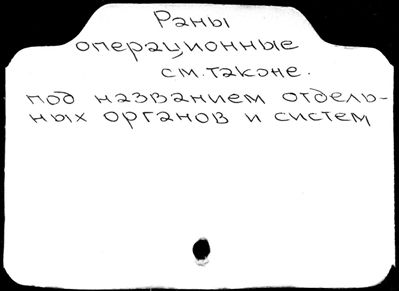 Раны
операционные
см. также.
под названием отдель-
ных органов и систем